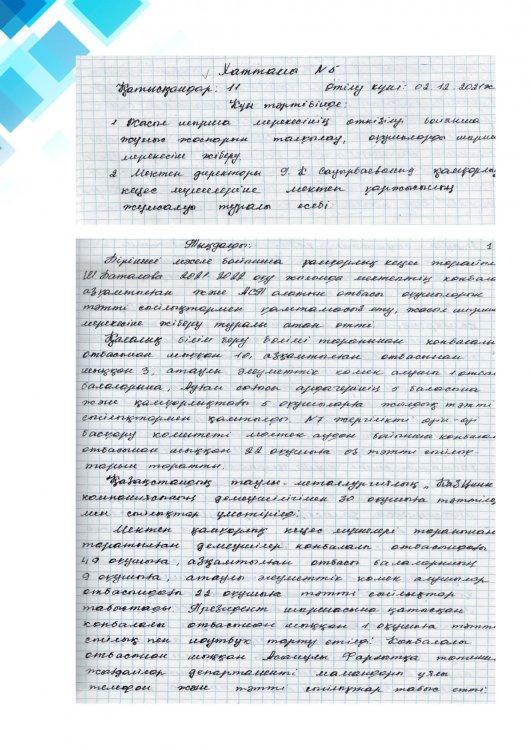 Хаттама №5
Қатысқандар: 11 Өтілу күні: 02.12.2021ж
Күн тәртібінде:
1 Жасыл шырша мерекесінің өткізілуі бойынша
жұмыс жоспарын талқылау, оқушыларды шырша
мерекесіне жіберу.
2 Мектеп директоры қамқорлық
кеңес мүшелеріне мектеп қаржысының
жұмсалуы туралы есебі
Тыңдалды: 1
Бірінші мәселе бойынша қамқорлық кеңес төрайымы
Ш Баталова 2021-2022 оқу жылында мектептің көпбалалы
азқамтылған және АСП алатын отбасы оқушыларын
тәтті сыйлықтармен қамтамасыз ету, жасыл шырша
мерекесіне жіберу туралы атап өтті.
Қалалық білім беру бөлімі тарапынан көпбалалы
отбасынан шыққан 10, азқамтылған отбасынан
шыққан 3, атаулы әлеуметтік көмек алушы 1 отбасы
балаларына, Ауған соғысы ардагерінің 5 баласына
және қамқорлықтағы 5 оқушыларға жылдық тәтті
сыйлықтармен қамтылды. №7 жергілікті өзін-өзі
басқару комитеті мектеп ауданы бойынша көпбалалы
отбасынан шыққан 22 оқушыға 03 тәтті сыйлық-
тарын таратты.
Қазақстандық таулы-металлургиялық "КазЦинк"
компаниясының демеушілігімен 30 оқушыға тәттілер
мен сыйлықтар үлестірілді.
Мектеп қамқорлық кеңес мүшелері тарапынан
таратылған демеушілер көпбалалы отбасындағы
49 оқушыға, азқамтылған отбасы балаларының
9 оқушыға, атаулы әлеуметтік көмек алушылар
отбасындағы 22 оқушыға тәтті сыйлықтар
табыстады. Президент шыршасына қатысқан
көпбалалы отбасынан шыққан 1 оқушыға тәтті
сыйлық пен ноутбук тарту етілді. Көпбалалы
отбасынан шыққан Асылжан төтенше
жағдайлар департаменті мамандары ұялы
телефон және тәтті сыйлықтар табыс етті.